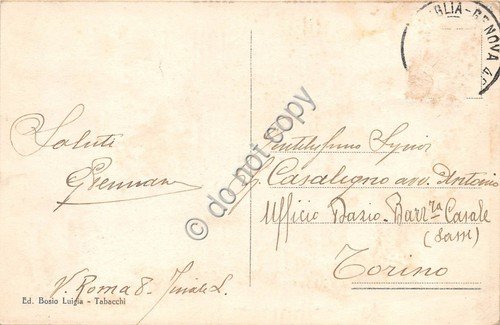 GLIA - GENOVA 4
Saluti
Gentilissimo Signor
Casalegno avv. Antonio
Ufficio Dazio - Barr.ra Casale
Torino
V. Roma 8 - Finale L.
Ed. Bosio Luigia - Tabacchi
© do not copy